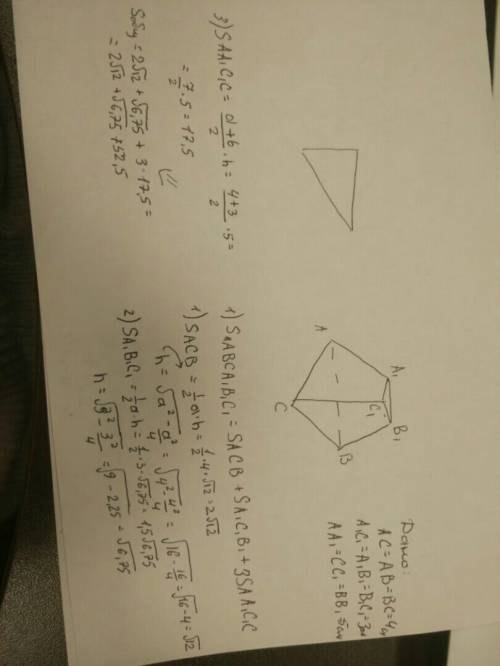 Дано:
AC = AB = BC = 4см
A₁C₁ = A₁B₁ = B₁C₁ = 3см
AA₁ = CC₁ = BB₁ = 5см
A
A₁
C₁
B₁
C
B
1) SпABCA₁B₁C₁ = SACB + SA₁C₁B₁ + 3SAA₁C₁C
1) SACB = 1/2 a·h = 1/2 · 4 · √12 = 2√12
h = √(a² - a²/4) = √(4² - 4²/4) = √(16 - 16/4) = √16-4 = √12
2) SA₁B₁C₁ = 1/2 a·h = 1/2 · 3 · √6,75 = 1,5√6,75
h = √(3² - 3²/4) = √9 - 2,25 = √6,75
3) SAA₁C₁C = (a+b)/2 · h = (4+3)/2 · 5 =
= 7/2 · 5 = 17,5
= 2√12 + √6,75 + 3 · 17,5 =
= 2√12 + √6,75 + 52,5